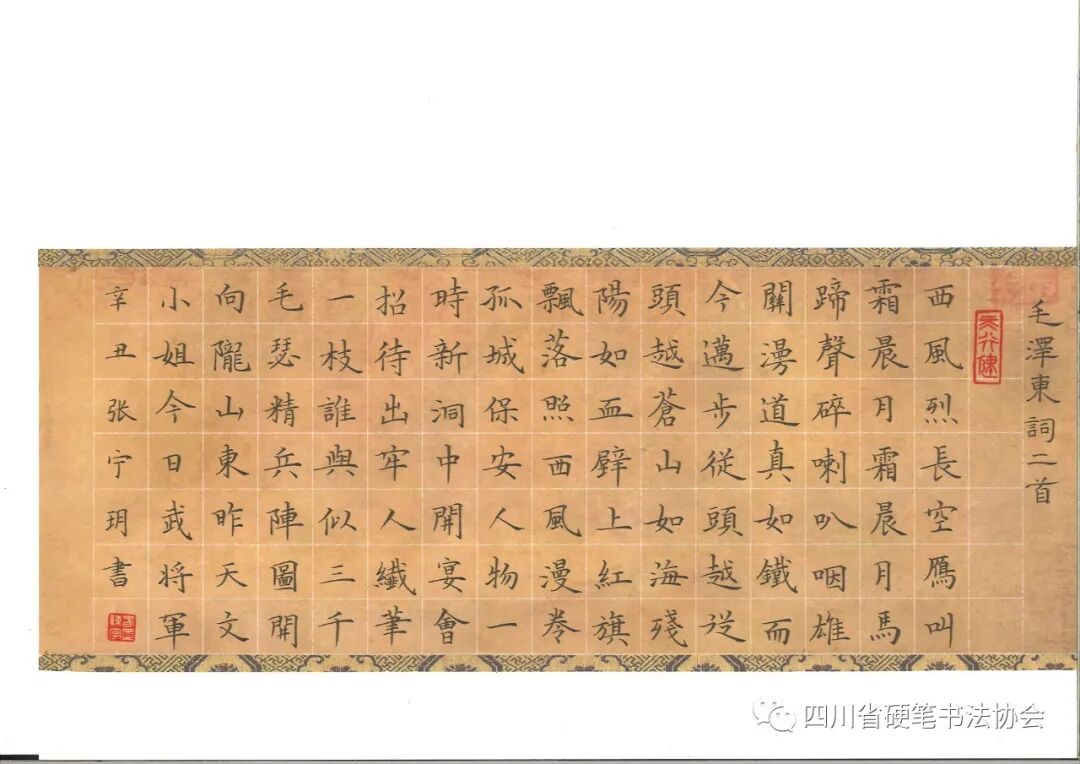 毛澤東詞二首
天行健
西風烈長空鴈叫
霜晨月霜晨月馬
蹄聲碎喇叭咽雄
關漫道真如鐵而
今邁步從頭越從
頭越蒼山如海殘
陽如血壁上紅旗
飄落照西風漫卷
孤城保安人物一
時新洞中開宴會
招待出牢人纖筆
一枝誰與似三千
毛瑟精兵陣圖開
向隴山東昨天文
小姐今日武将軍
辛丑张宁玥書
四川省硬笔书法协会